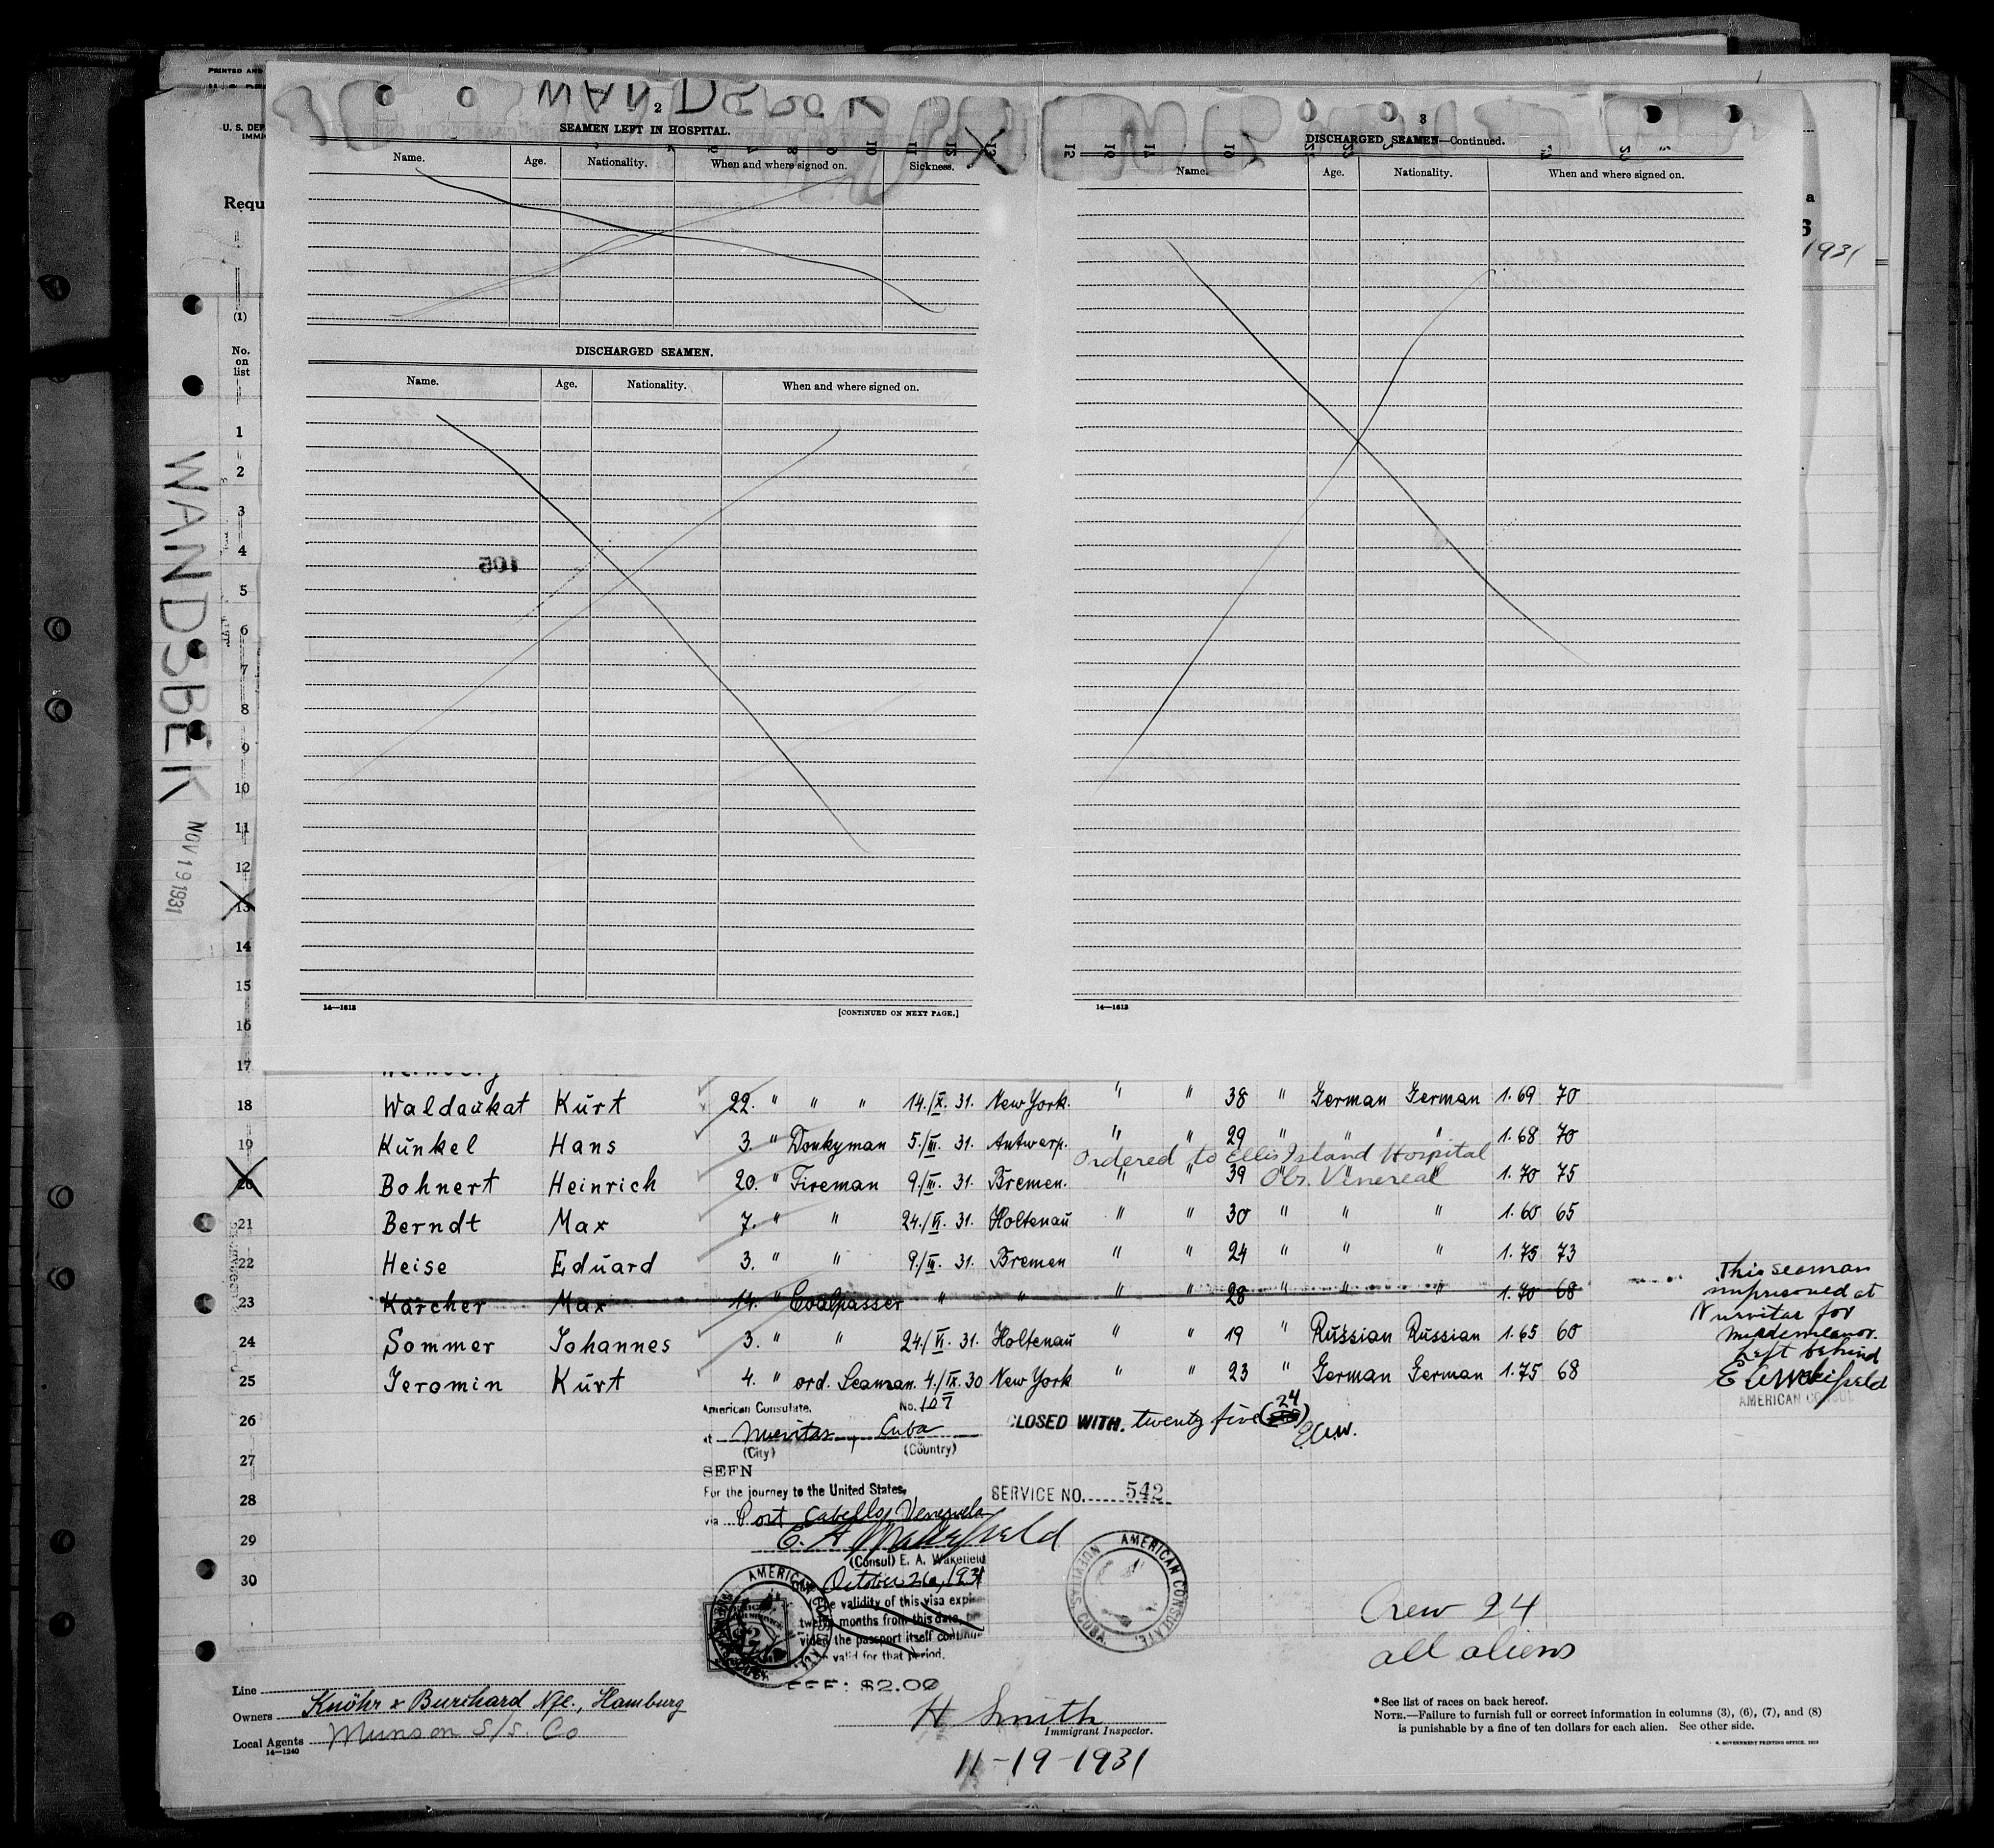 PRINTED AND
U. S. DEP
IMMI
Requ
(1)
No.
on
list
WANDSBEK
NOV 19 1931
a
S
1931
2
SEAMEN LEFT IN HOSPITAL.
Name. Age. Nationality. When and where signed on. Sickness.
DISCHARGED SEAMEN.
Name. Age. Nationality. When and where signed on.
105
14—1612 [CONTINUED ON NEXT PAGE.]
3
DISCHARGED SEAMEN—Continued.
Name. Age. Nationality. When and where signed on.
14—1612
1
2
3
4
5
6
7
8
9
10
11
12
13
14
15
16
17
18 Waldaukat Kurt 22. " " " 14./X. 31. New York. " " 38 " German German 1.69 70
19 Kunkel Hans 3. " Donkyman 5./III. 31. Antwerp. " " 29 " " " 1.68 70
Ordered to Ellis Island Hospital
20 Bohnert Heinrich 20. " Fireman 9./III. 31. Bremen. " " 39 " " " 1.70 75
Obs. Venereal
21 Berndt Max 7. " " 24./VI. 31. Holtenau " " 30 " " " 1.60 65
22 Heise Eduard 3. " " 9./III. 31. Bremen " " 24 " " " 1.75 73
23 Karcher Max 14. " Coalpasser " " " " 28 " " " 1.70 68
24 Sommer Johannes 3. " " 24./VI. 31. Holtenau " " 19 " Russian Russian 1.65 60
25 Jeromin Kurt 4. " ord. Seaman. 4./IX. 30 New York " " 23 " German German 1.75 68
This seaman
imprisoned at
Nuevitas for
misdemeanor.
Left behind
E A Wakefield
AMERICAN CONSUL
26
27
28
29
30
American Consulate. No. 107
at Nuevitas, Cuba
(City) (Country)
CLOSED WITH. twenty five (24)
E.A.W.
SEEN
For the journey to the United States,
via Port Cabello, Venezuela
SERVICE NO. 542
E. A. Wakefield
(Consul) E. A. Wakefield
October 26, 1931
(The validity of this visa expires
twelve months from this date, pro
vided the passport itself continues
valid for that period.
FEE: $2.00
AMERICAN CONSULATE, NUEVITAS, CUBA
Crew 24
all aliens
Line
Owners Knöhr & Burchard Nfl., Hamburg
Local Agents Munson S/S. Co
14—1240
H Smith
Immigrant Inspector.
11-19-1931
*See list of races on back hereof.
NOTE.—Failure to furnish full or correct information in columns (3), (6), (7), and (8)
is punishable by a fine of ten dollars for each alien. See other side.
GOVERNMENT PRINTING OFFICE